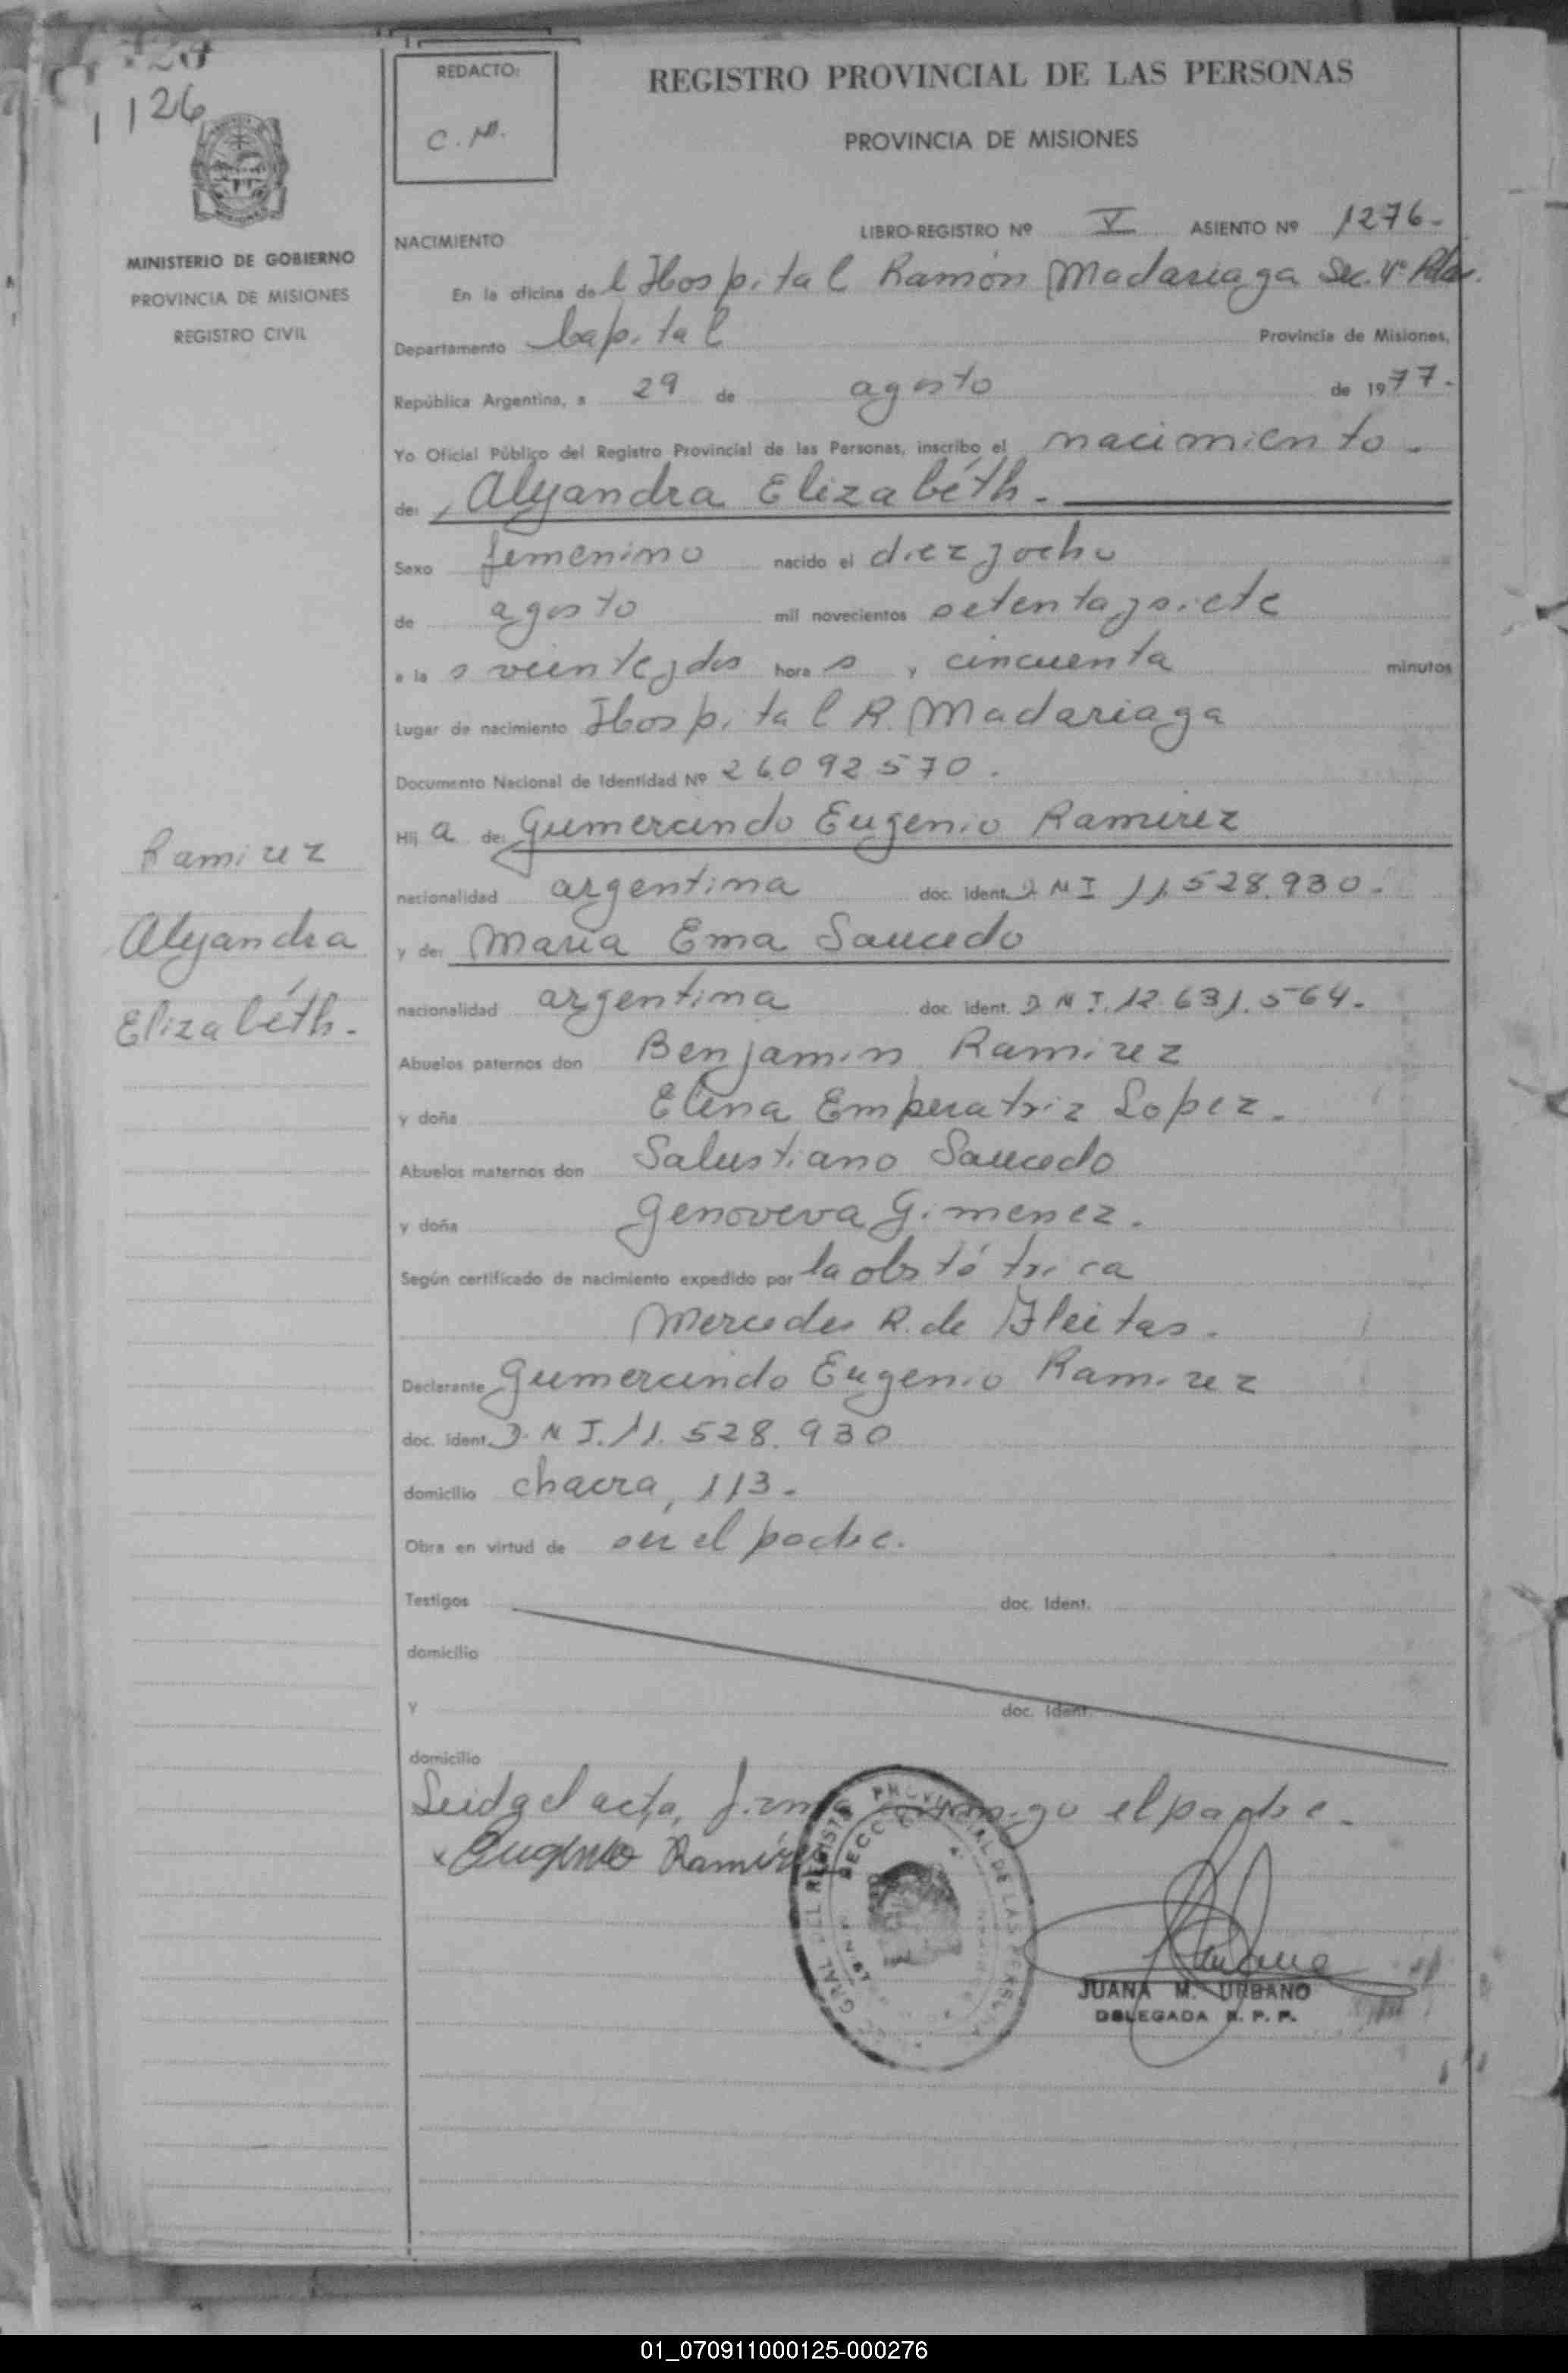 126
REDACTO:
C. M.
REGISTRO PROVINCIAL DE LAS PERSONAS
PROVINCIA DE MISIONES
MINISTERIO DE GOBIERNO
PROVINCIA DE MISIONES
REGISTRO CIVIL
NACIMIENTO LIBRO-REGISTRO Nº V ASIENTO Nº 1276-
En la oficina del Hospital Ramón Madariaga Sec. 4ª Pdas.
Departamento Capital Provincia de Misiones,
República Argentina, a 29 de agosto de 1977-
Yo Oficial Público del Registro Provincial de las Personas, inscribo el nacimiento-
de: Alejandra Elizabéth.
Sexo femenino nacido el diezyocho
de agosto mil novecientos setentaysiete
a las veinteydos horas y cincuenta minutos
Lugar de nacimiento Hospital R. Madariaga
Documento Nacional de Identidad Nº 26092570.
Hija de: Gumercindo Eugenio Ramirez
nacionalidad argentina doc. ident. DNI 11.528.930.
y de: Maria Ema Saucedo
nacionalidad argentina doc. ident. D.N.I. 12.631.564.
Abuelos paternos don Benjamin Ramirez
y doña Elena Emperatriz Lopez.
Abuelos maternos don Salustiano Saucedo
y doña Genoveva Gimenez.
Según certificado de nacimiento expedido por la obstétrica
Mercedes R. de Fleitas.
Declarante Gumercindo Eugenio Ramirez
doc. ident. D.N.I. 11.528.930
domicilio chacra, 113.
Obra en virtud de ser el padre.
Testigos doc. Ident.
domicilio
y doc. Ident.
domicilio
Leida el acta, firma conmigo el padre.
x Eugenio Ramirez
JUANA M. URBANO
DELEGADA R. P. P.
Ramirez
Alejandra
Elizabéth.
01_070911000125-000276